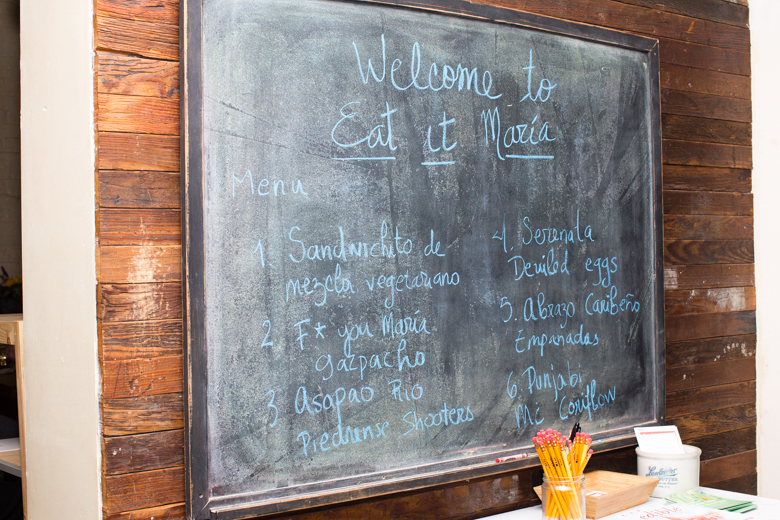 Welcome to
Eat it María
Menu
1. Sandwichito de
mezcla vegetariano
2. F* you María
gazpacho
3 Asapao Rio
Piedrense Shooters
4. Serenata
Deviled eggs
5. Abrazo Caribeño
Empanadas
6. Punjabi
Mc Coriflow